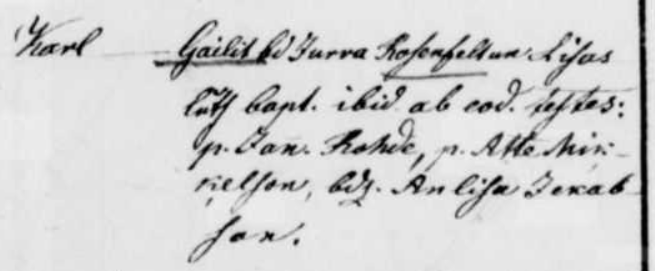 Karl — Gailit bd Jurra Rosenfelt un Lisas
luth bapt. ibid. ab eod. testes:
p. Jan. Rohde, p. Atte Mik-
kelson, bdz. Anlisa Jekab-
son.